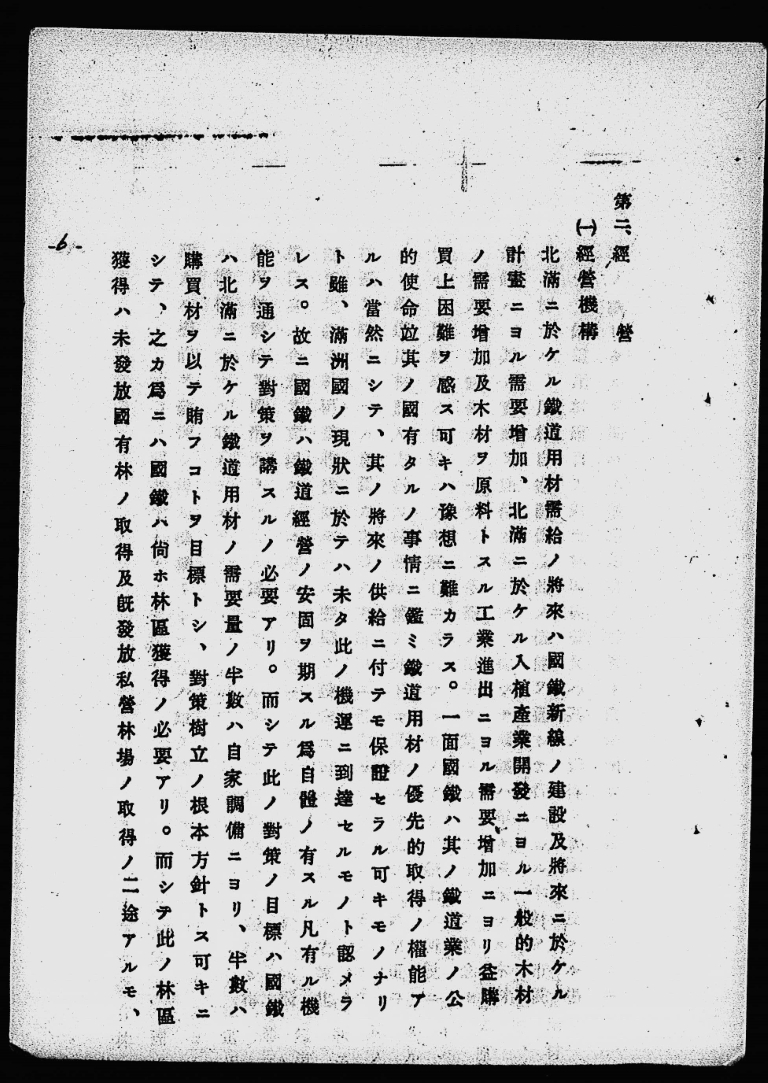 第二、經營
㈠經營機構
北滿ニ於ケル鐵道用材需給ノ將來ハ國鐵新線ノ建設及將來ニ於ケル
計畫ニヨル需要增加、北滿ニ於ケル入植產業開發ニヨル一般的木材
ノ需要增加及木材ヲ原料トスル工業進出ニヨル需要增加ニヨリ益購
買上困難ヲ感ス可キハ豫想ニ難カラス。一面國鐵ハ其ノ鐵道業ノ公
的使命竝其ノ國有タルノ事情ニ鑑ミ鐵道用材ノ優先的取得ノ權能ア
ルハ當然ニシテ、其ノ將來ノ供給ニ付テモ保證セラル可キモノナリ
ト雖、滿洲國ノ現狀ニ於テハ未タ此ノ機運ニ到達セルモノト認メラ
レス。故ニ國鐵ハ鐵道經營ノ安固ヲ期スル爲自體ノ有スル凡有ル機
能ヲ通シテ對策ヲ講スルノ必要アリ。而シテ此ノ對策ノ目標ハ國鐵
ハ北滿ニ於ケル鐵道用材ノ需要量ノ半數ハ自家調備ニヨリ、半數ハ
購買材ヲ以テ賄フコトヲ目標トシ、對策樹立ノ根本方針トス可キニ
シテ、之カ爲ニハ國鐵ハ尙ホ林區獲得ノ必要アリ。而シテ此ノ林區
獲得ハ未發放國有林ノ取得及旣發放私營林場ノ取得ノ二途アルモ、
-6-